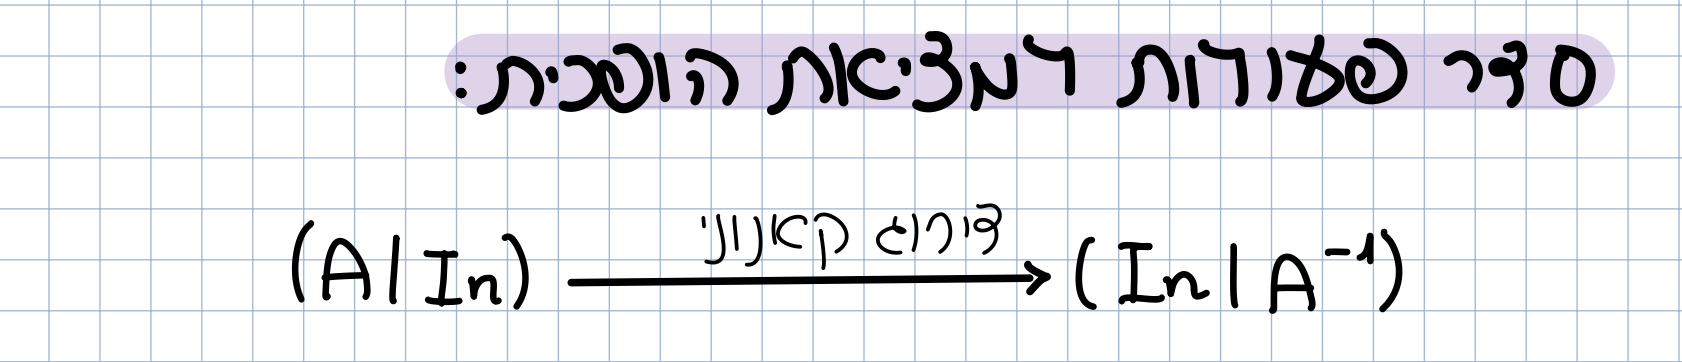 סדר פעולות למציאת הופכית:
(A | In) ⟶ דירוג קאנוני (In | A⁻¹)